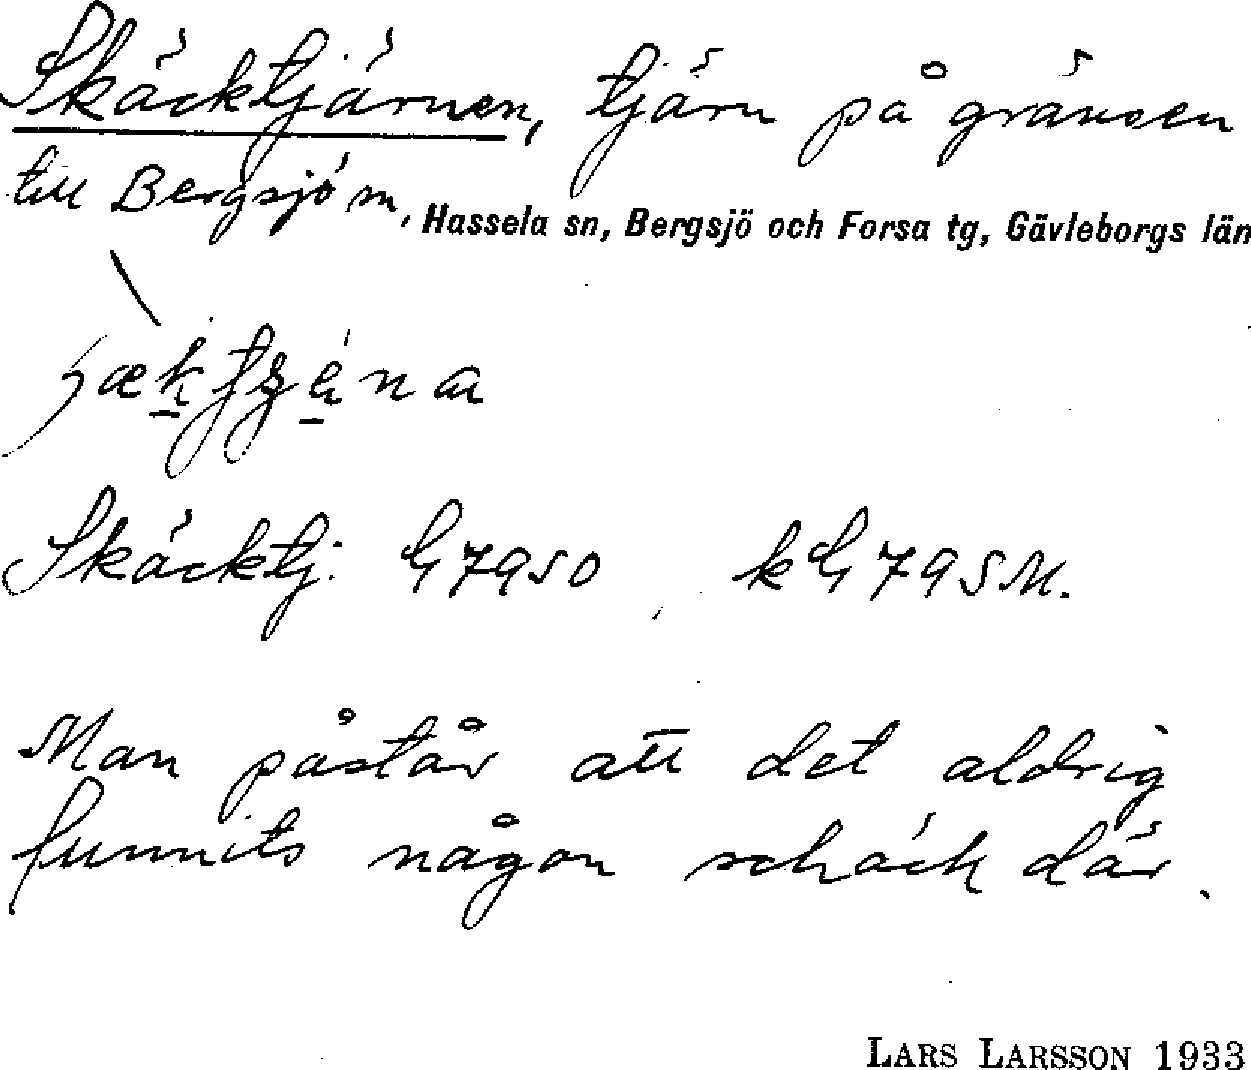 Skäcktjärnen, tjärn på gränsen
till Bergsjö sn, Hassela sn, Bergsjö och Forsa tg, Gävleborgs län
Skäcktj. G7950 kG795M.
Man påstår att det aldrig
funnits någon schäck där.
LARS LARSSON 1933